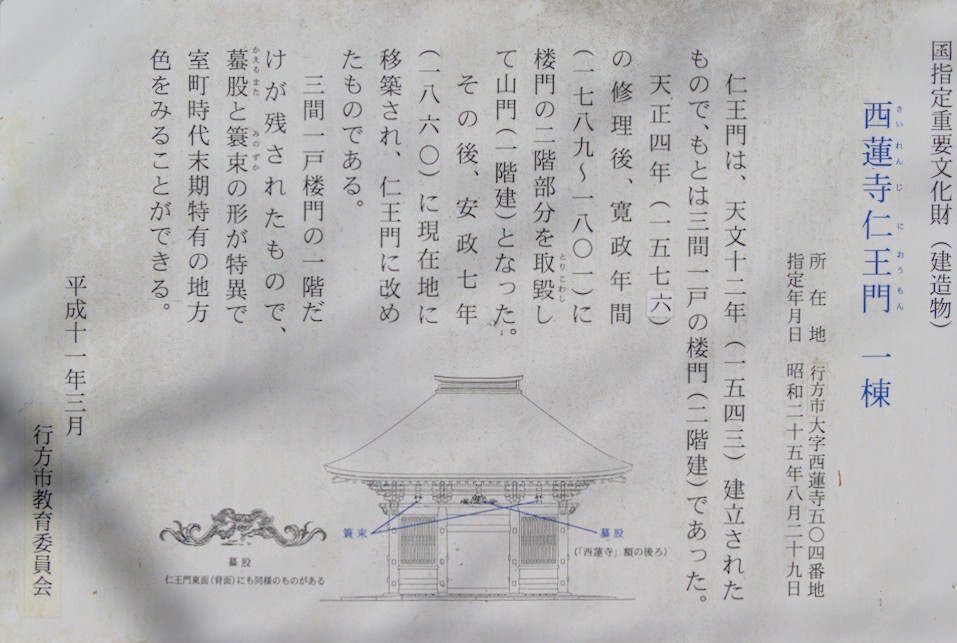 国指定重要文化財（建造物）
さいれんじにおうもん
西蓮寺仁王門　一棟
所在地　行方市大字西蓮寺五〇四番地
指定年月日　昭和二十五年八月二十九日
仁王門は、天文十二年（一五四三）建立された
もので、もとは三間一戸の楼門（二階建）であった。
天正四年（一五七六）
の修理後、寛政年間
（一七八九～一八〇一）に
とりこわし
楼門の二階部分を取毀し
て山門（一階建）となった。
その後、安政七年
（一八六〇）に現在地に
移築され、仁王門に改め
たものである。
三間一戸楼門の一階だ
けが残されたもので、
かえるまた　みのずか
蟇股と簑束の形が特異で
室町時代末期特有の地方
色をみることができる。
平成十一年三月
行方市教育委員会
簑束
蟇股
（「西蓮寺」額の後ろ）
蟇股
仁王門東面（背面）にも同様のものがある